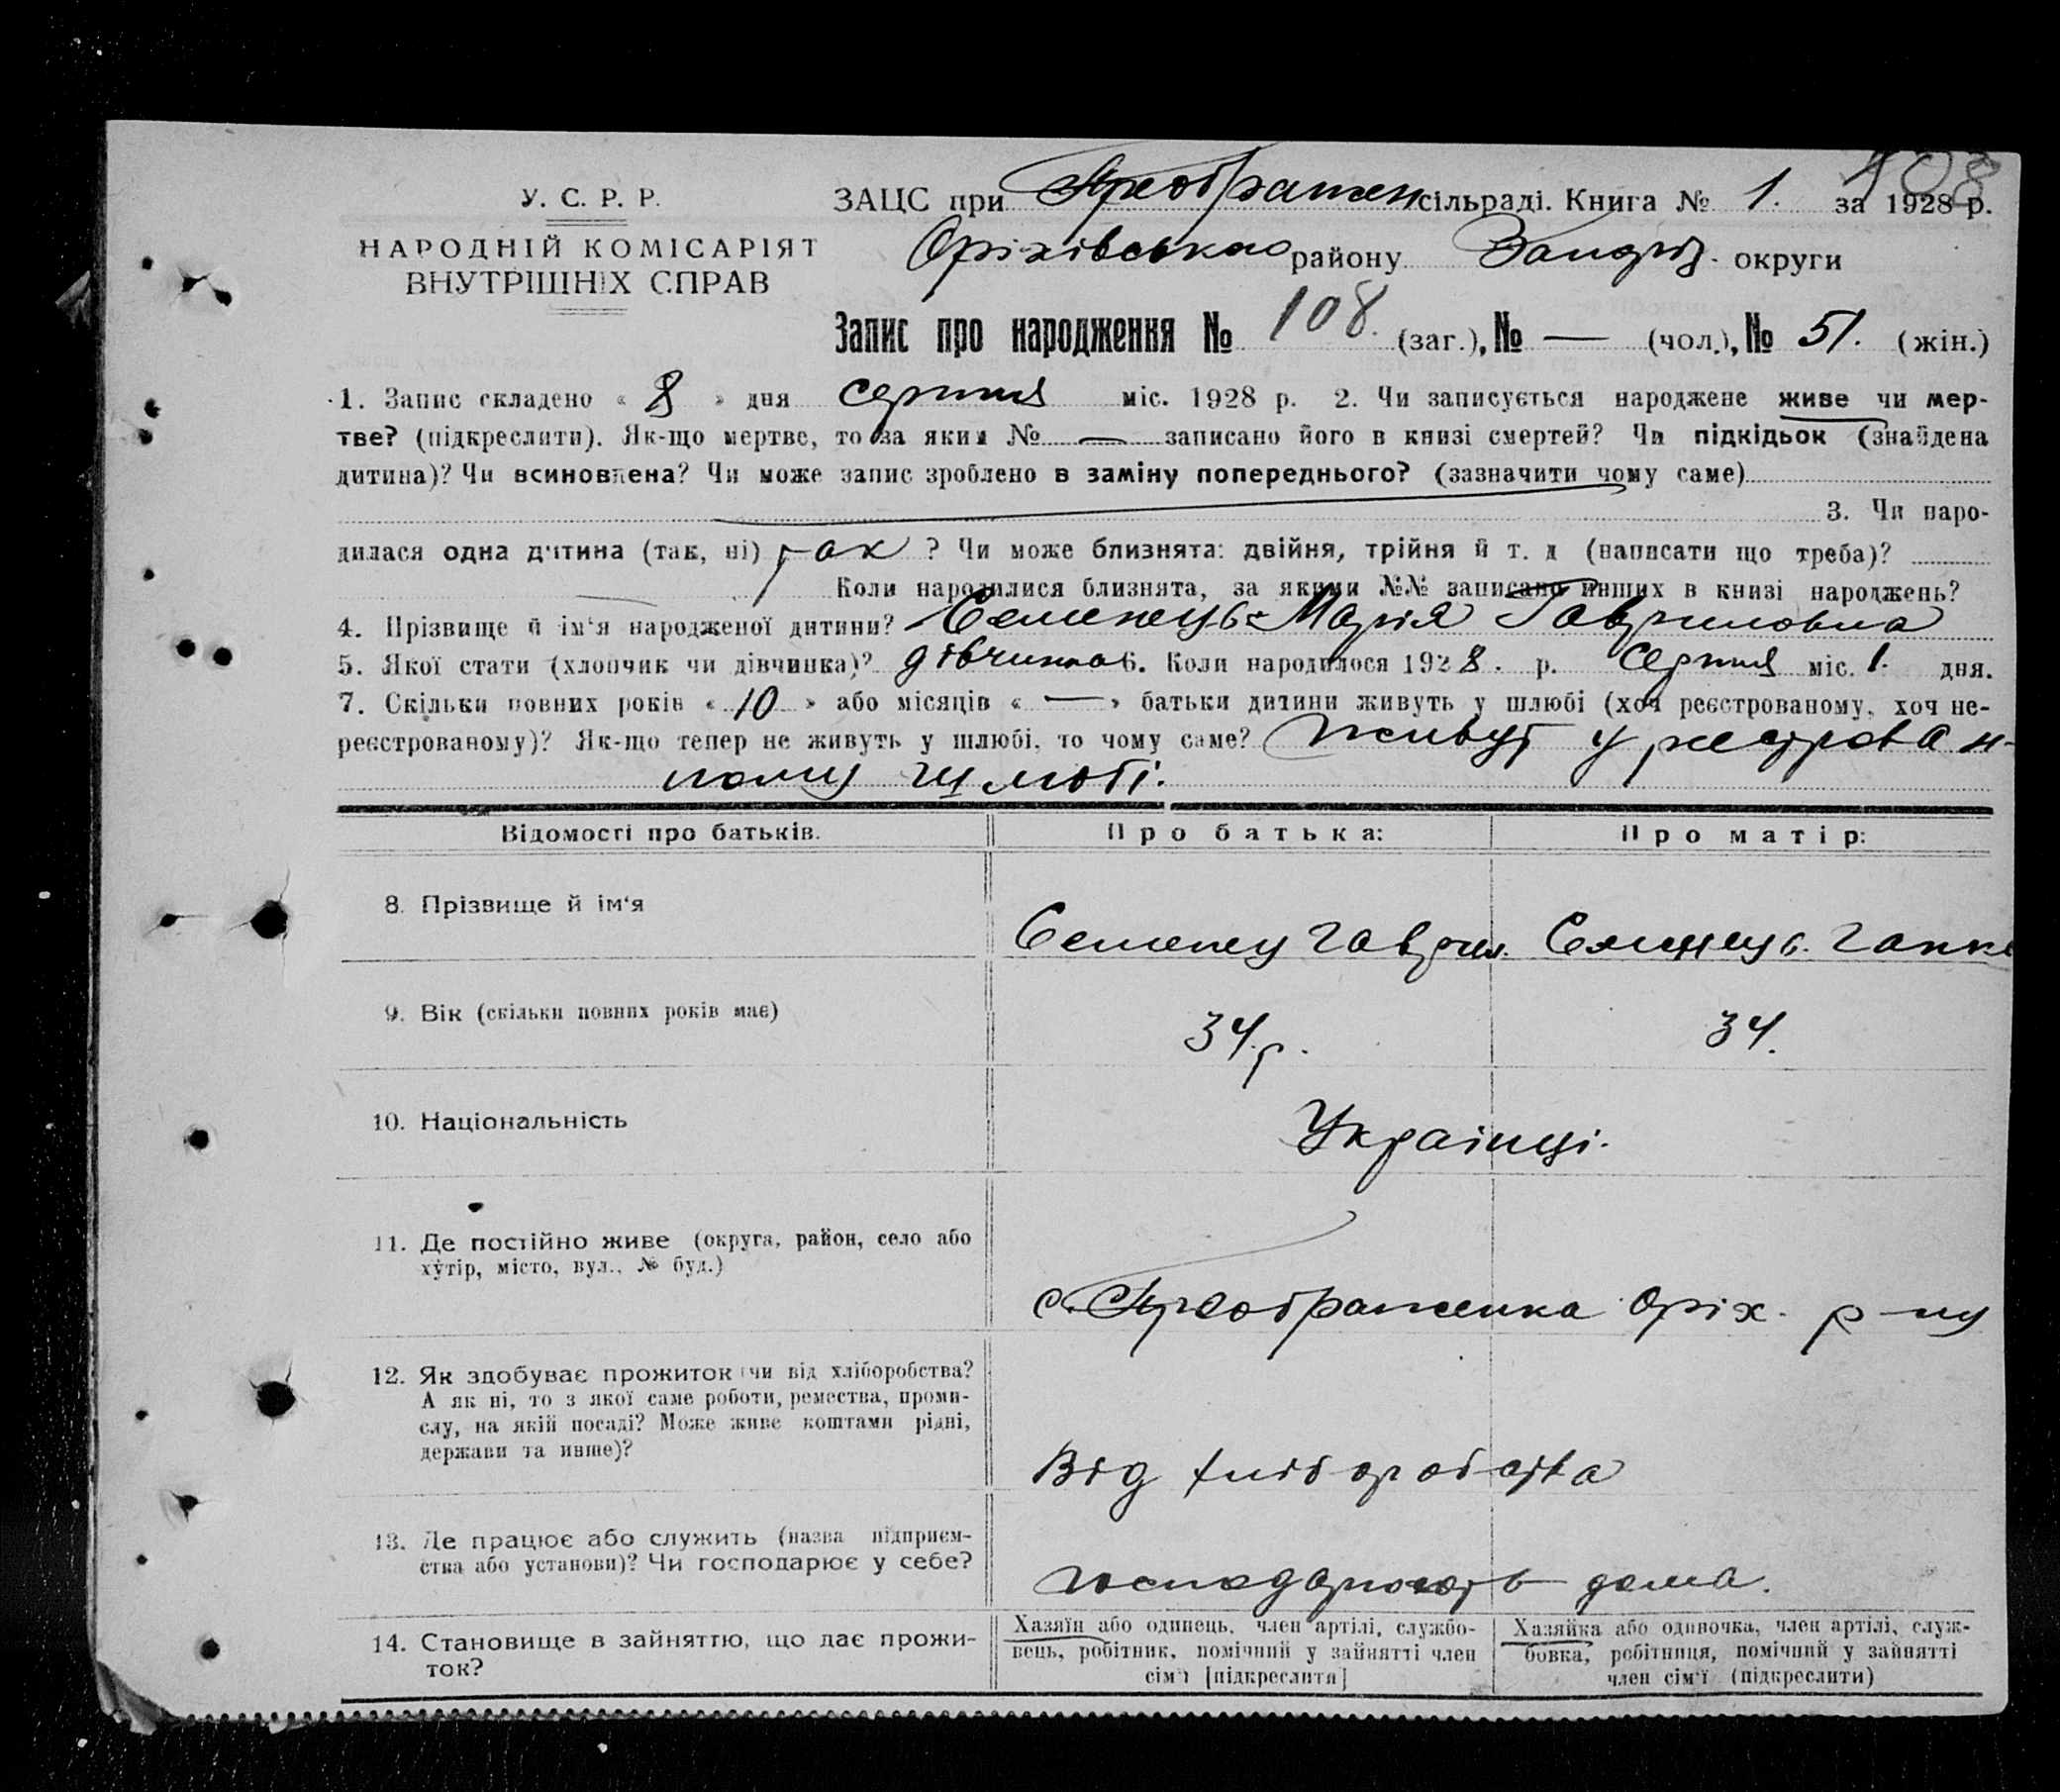 108
У. С. Р. Р.
НАРОДНІЙ КОМІСАРІЯТ
ВНУТРІШНІХ СПРАВ
ЗАЦС при Преображен сільраді. Книга № 1. за 1928 р.
Оріхівського району Запоріз. округи
Запис про народження № 108. (заг.), № — (чол.), № 51. (жін.)
1. Запис складено « 8 » дня серпня міс. 1928 р. 2. Чи записується народжене живе чи мер-
тве? (підкреслити). Як-що мертве, то за яким № — записано його в книзі смертей? Чи підкідьок (знайдена
дитина)? Чи всиновлена? Чи може запис зроблено в заміну попереднього? (зазначити чому саме)
3. Чи наро-
дилася одна дитина (так, ні) так ? Чи може близнята: двійня, трійня й т. д (написати що треба)?
Коли народилися близнята, за якими №№ записано инших в книзі народжень?
4. Прізвище й ім'я народженої дитини? Семенець Марія Гавриловна
5. Якої стати (хлопчик чи дівчинка)? дівчинка 6. Коли народилося 1928. р. Серпня міс. 1. дня.
7. Скільки повних років « 10 » або місяців « — » батьки дитини живуть у шлюбі (хоч реєстрованому, хоч не-
реєстрованому)? Як-що тепер не живуть у шлюбі, то чому саме? живут у реєстрован-
ному шлюбі.
Відомості про батьків.
Про батька:
Про матір:
8. Прізвище й ім'я
Семенец Гаврил.
Семенець. Ганна
9. Вік (скільки повних років має)
34 р.
34.
10. Національність
Українці.
11. Де постійно живе (округа, район, село або
хутір, місто, вул., № буд.)
с. Преображенка Оріх. р-ну
12. Як здобуває прожиток (чи від хліборобства?
А як ні, то з якої саме роботи, ремества, проми-
слу, на якій посаді? Може живе коштами рідні,
держави та инше)?
Від хліборобства
13. Де працює або служить (назва підприєм-
ства або установи)? Чи господарює у себе?
господарюють дома.
14. Становище в зайняттю, що дає прожи-
ток?
Хазяїн або одинець, член артілі, службо-
вець, робітник, помічний у зайнятті член
сім'ї [підкреслити]
Хазяйка або одиночка, член артілі, служ-
бовка, робітниця, помічний у зайнятті
член сім'ї (підкреслити)